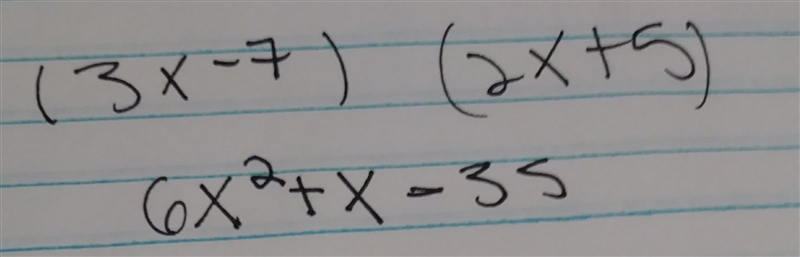 (3x-7) (2x+5)
6x²+x-35